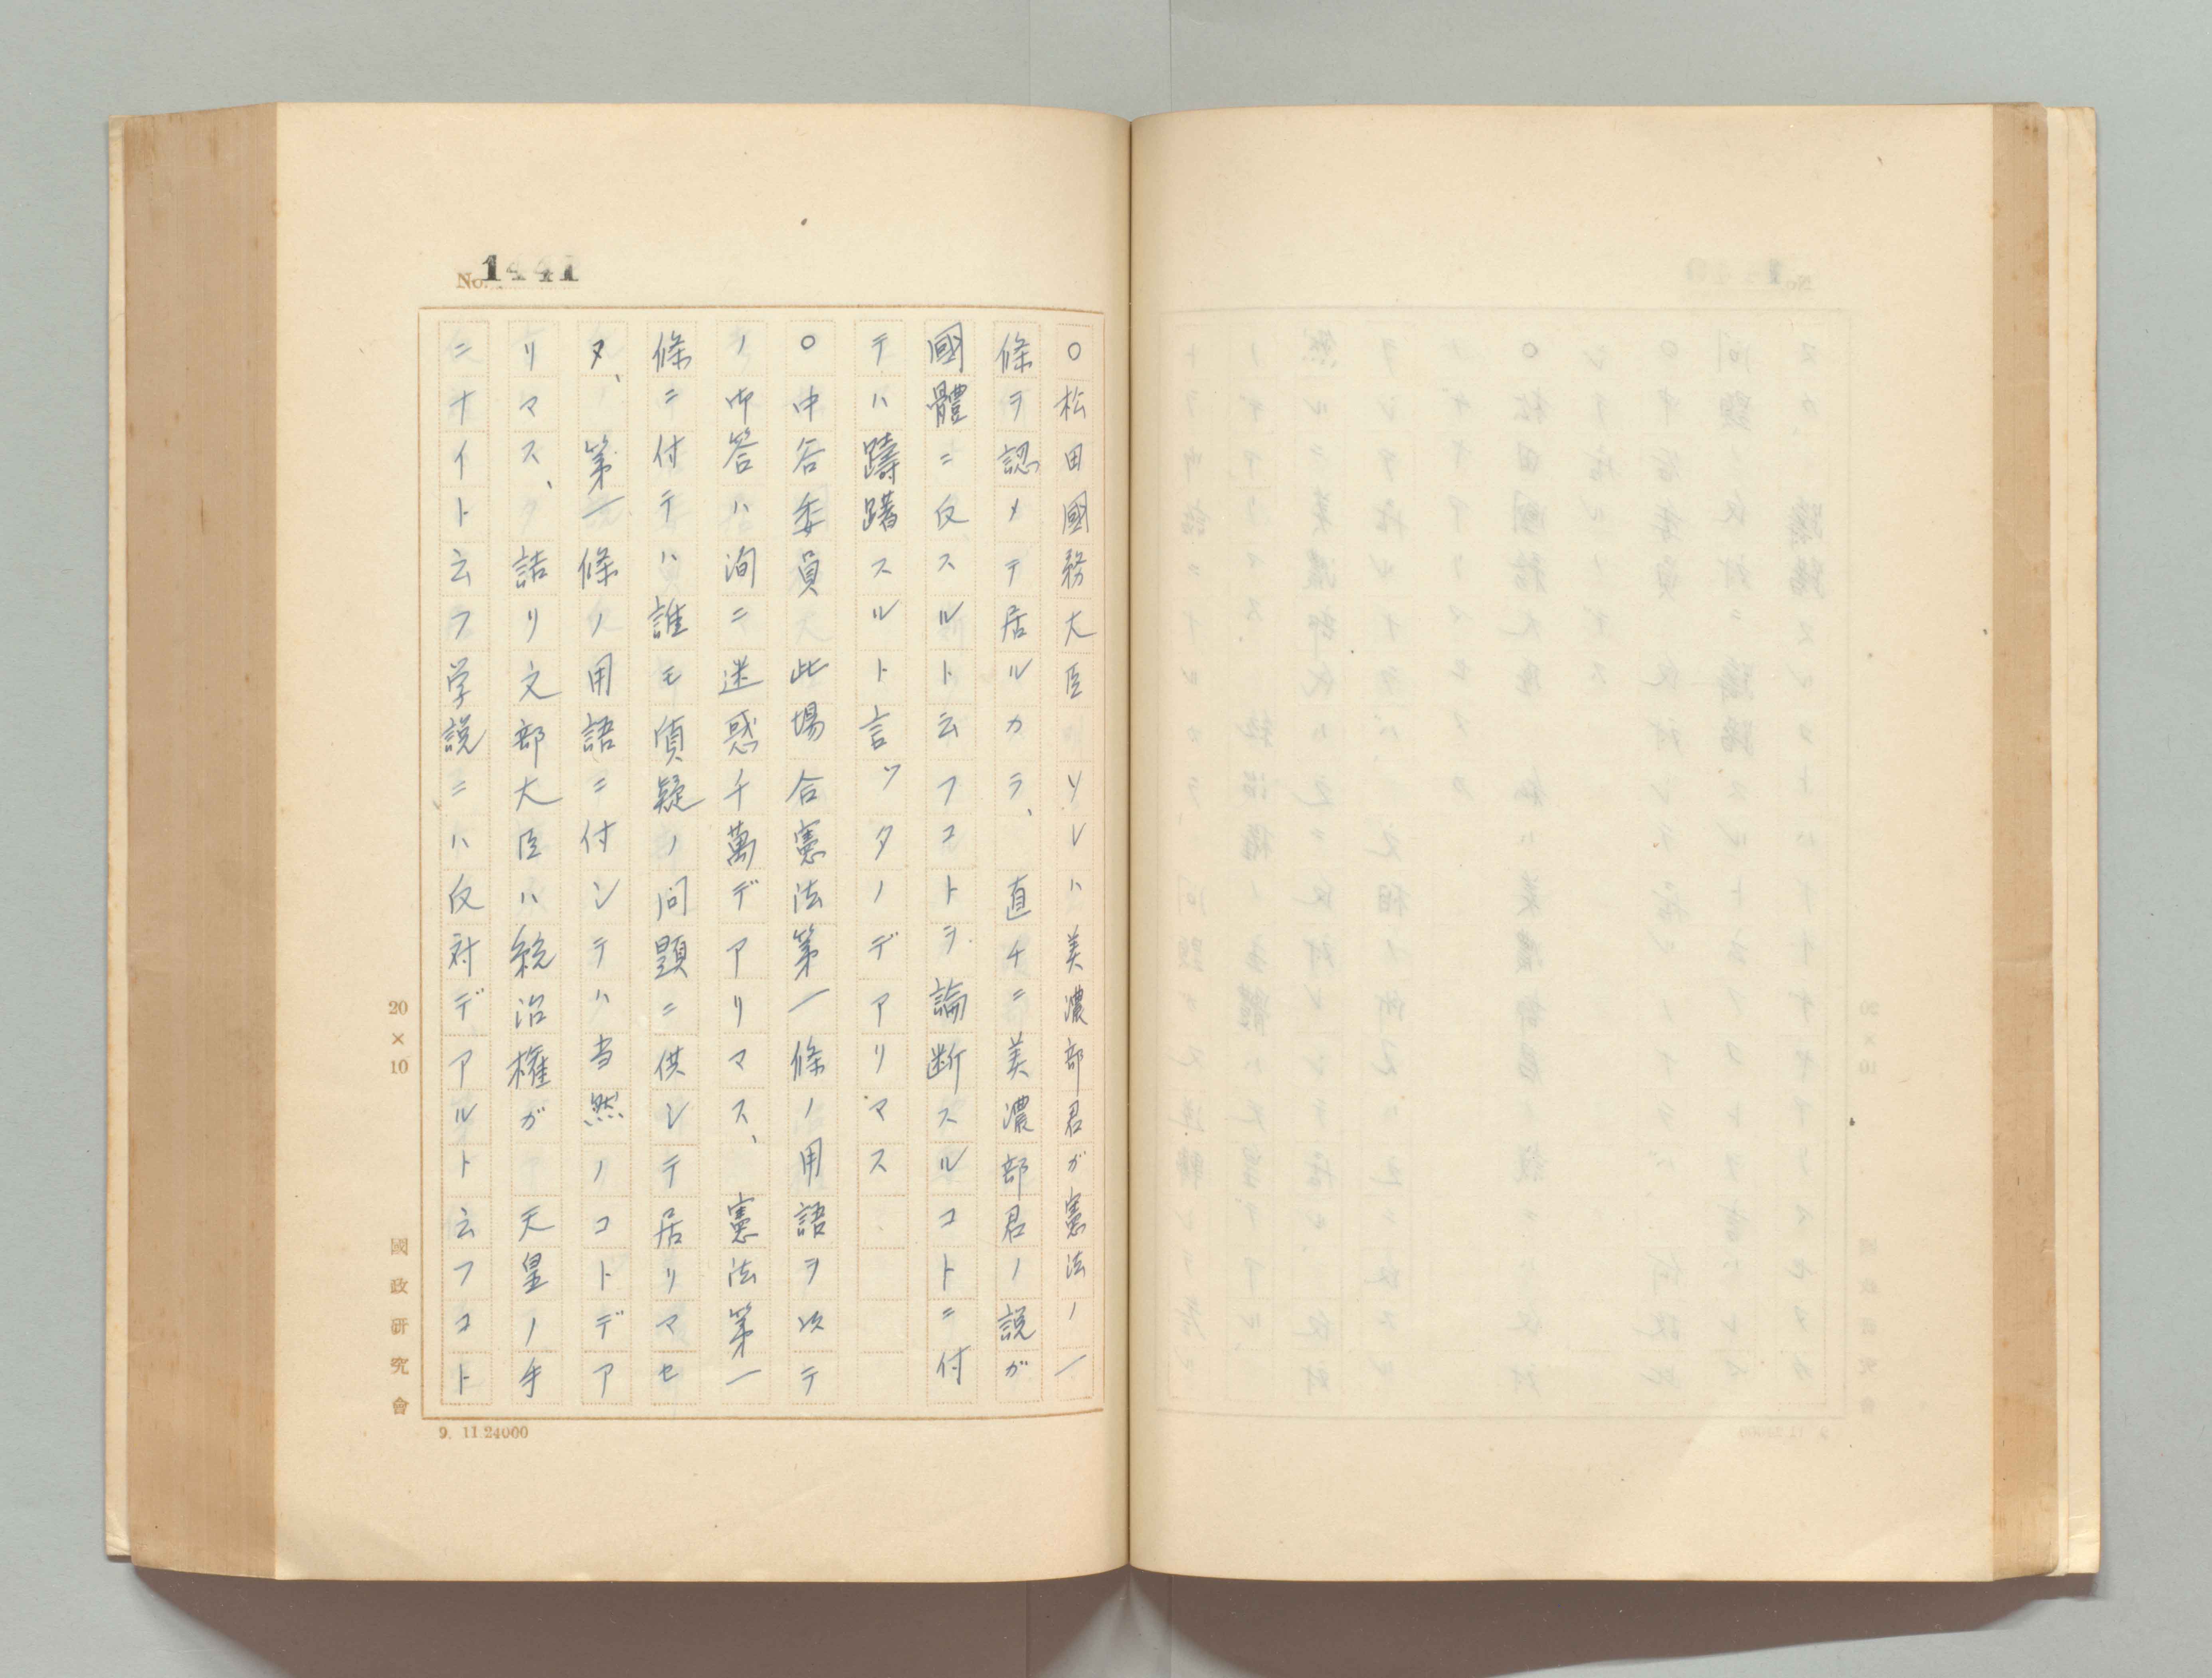 No. 1441
○松田國務大臣　ソレハ美濃部君ガ憲法ノ一
條ヲ認メテ居ルカラ、直チニ美濃部君ノ説ガ
國體ニ反スルト云フコトヲ論断スルコトニ付
テハ躊躇スルト言ツタノデアリマス
○中谷委員　此場合憲法第一條ノ用語ヲ以テ
ノ御答ハ洵ニ迷惑千萬デアリマス、憲法第一
條ニ付テハ誰モ質疑ノ問題ニ供シテ居リマセ
ヌ、第一條ノ用語ニ付シテハ当然ノコトデア
リマス、詰リ文部大臣ハ統治權ガ天皇ノ手
ニナイト云フ学説ニハ反対デアルト云フコト
20×10
國政研究會
9. 11.24000